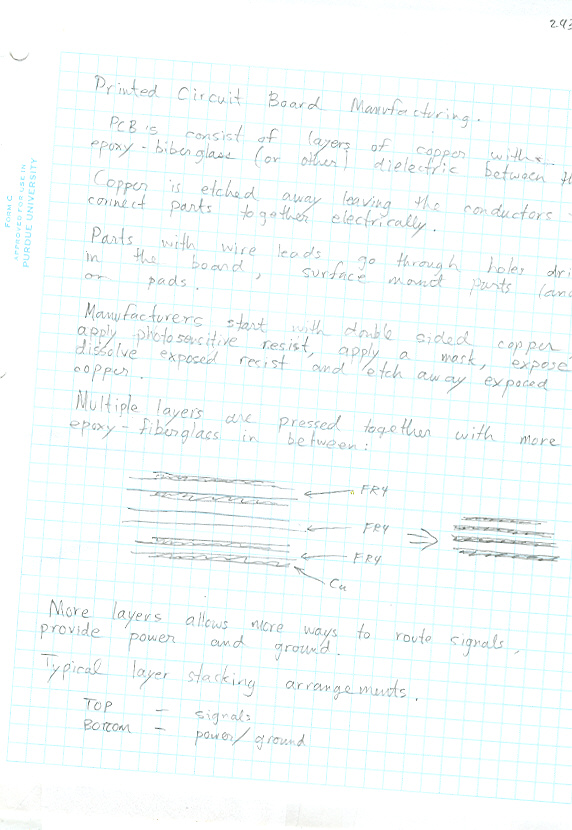 243
Printed Circuit Board Manufacturing.
PCB's consist of layers of copper with
epoxy-biberglass (or other) dielectric between th
Copper is etched away leaving the conductors
connect parts together electrically.
Parts with wire leads go through holes dri
in the board, surface mount parts lan
on pads.
Manufacturers start with double sided copper
apply photosensitive resist, apply a mask, expose
dissolve exposed resist and etch away exposed
copper.
Multiple layers are pressed together with more
epoxy-fiberglass in between:
FR4
FR4
FR4
Cu
More layers allows more ways to route signals,
provide power and ground.
Typical layer stacking arrangements.
TOP – signals
BOTTOM – power/ground
FORM C
APPROVED FOR USE IN
PURDUE UNIVERSITY